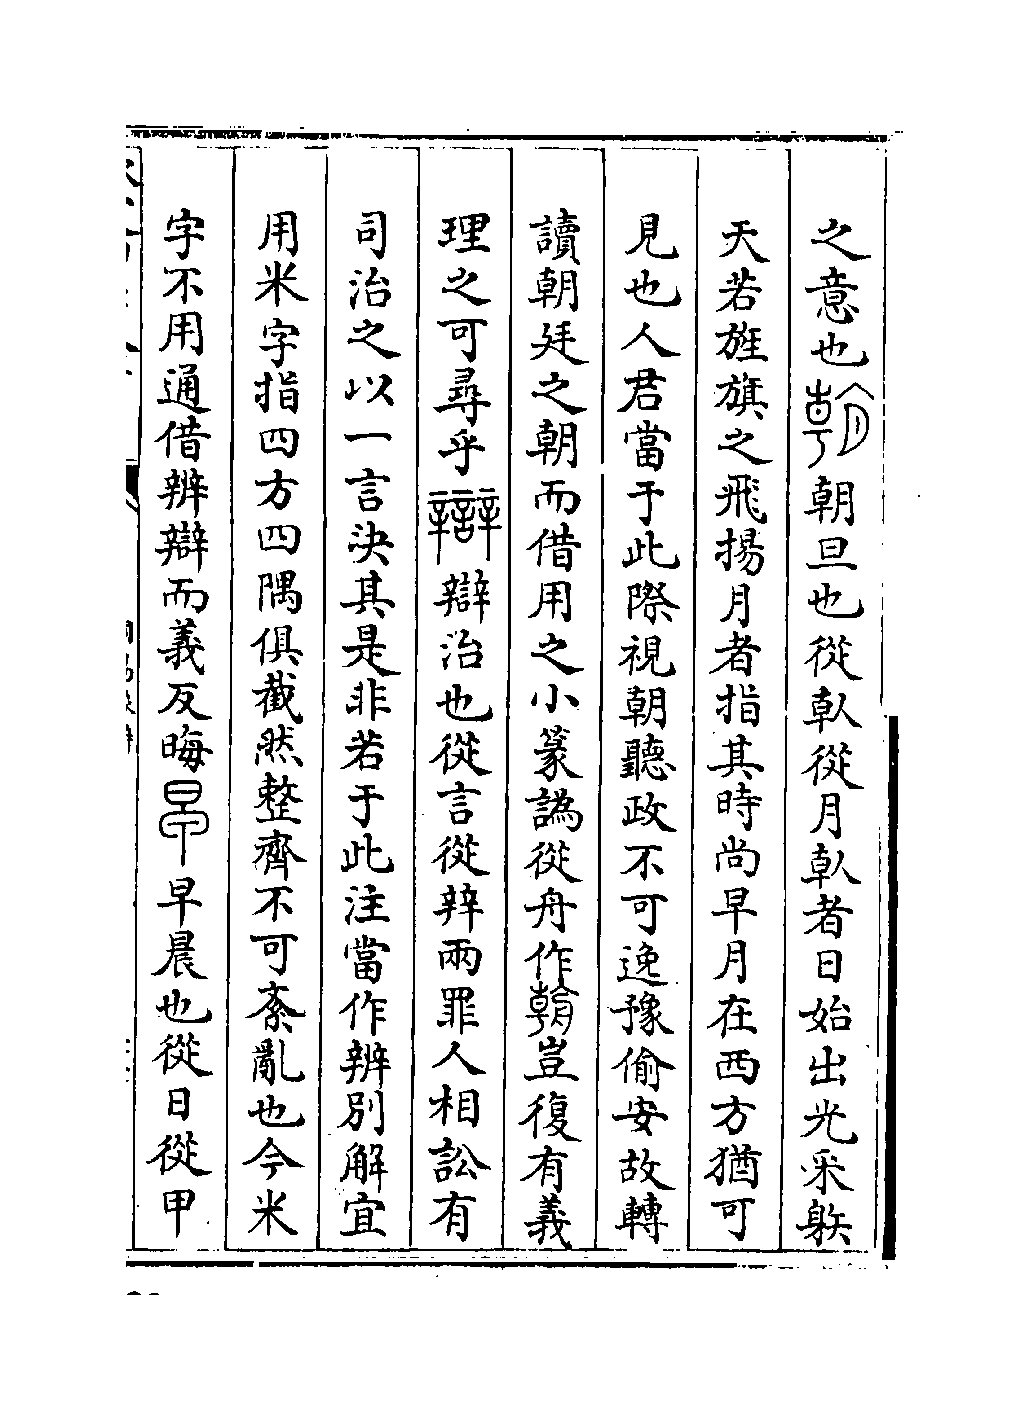 之意也朝旦也從倝從月倝者日始出光采躲
天若旌旗之飛揚月者指其時尚早月在西方猶可
見也人君當于此際視朝聽政不可逸豫偷安故轉
讀朝廷之朝而借用之小篆譌從舟作豈復有義
理之可尋乎辯治也從言從辡兩罪人相訟有
司治之以一言決其是非若于此注當作辨別解宜
用釆字指四方四隅俱截然整齊不可紊亂也今釆
字不用通借辨辯而義反晦早晨也從日從甲